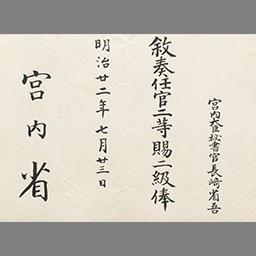 宮内大臣秘書官長崎省吾
敘奏任官二等賜二級俸
明治廿二年七月廿三日
宮内省